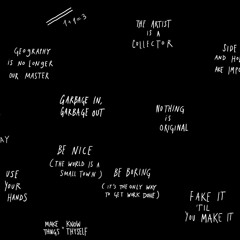 1+1=3
THE ARTIST
IS A
COLLECTOR
GEOGRAPHY
IS NO LONGER
OUR MASTER
SIDE
AND HO
ARE IMPO
GARBAGE IN,
GARBAGE OUT
NOTHING
IS
ORIGINAL
AY
BE NICE
(THE WORLD IS A
SMALL TOWN)
USE
YOUR
HANDS
BE BORING
(IT'S THE ONLY WAY
TO GET WORK DONE)
FAKE IT
'TIL
YOU MAKE IT
MAKE KNOW
THINGS THYSELF